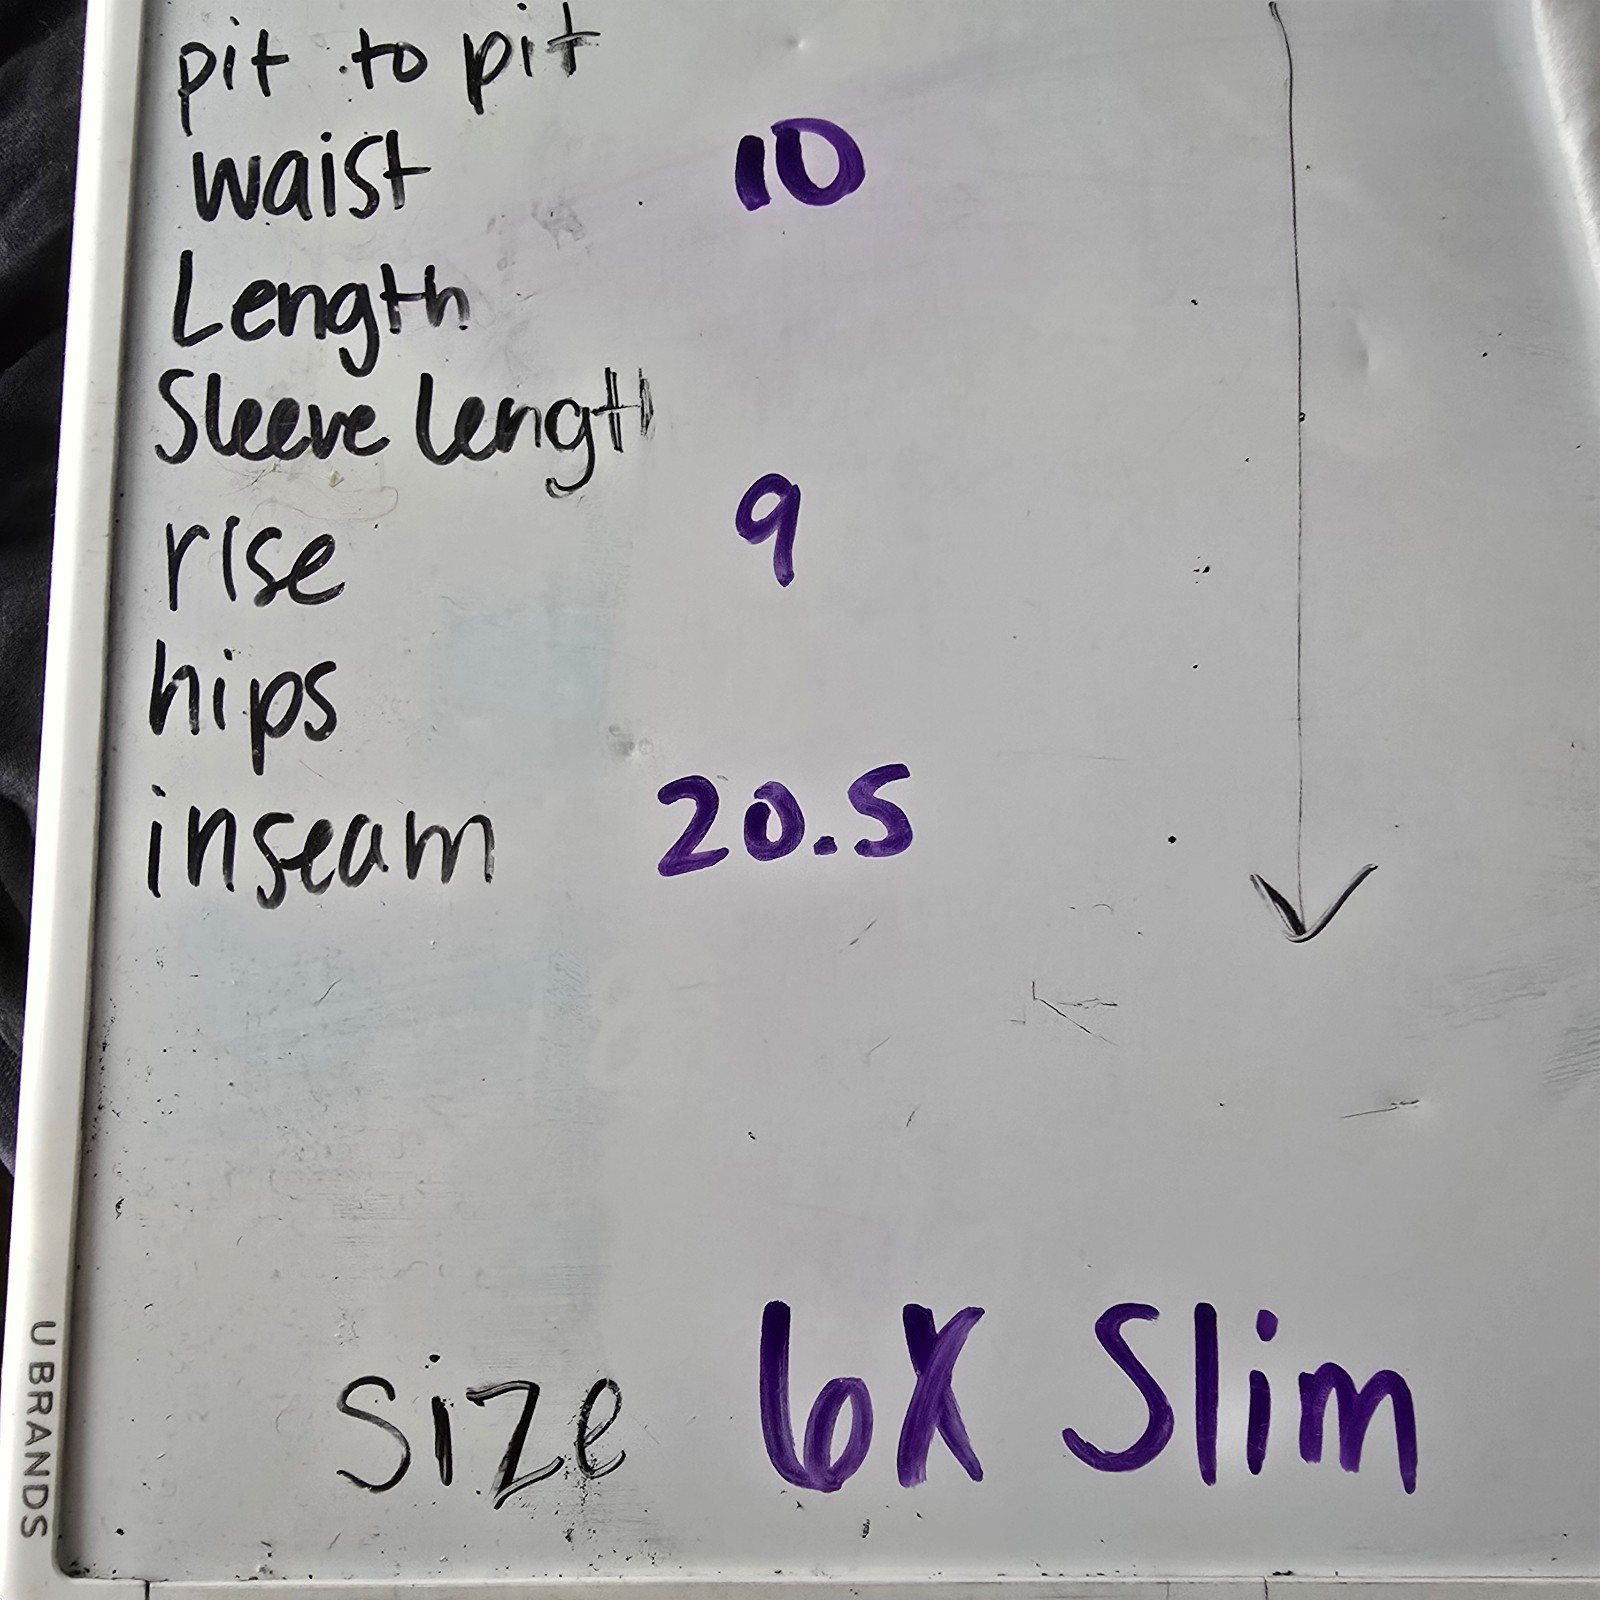 pit to pit
waist 10
Length
Sleeve length
rise 9
hips
inseam 20.5
size 6X Slim
U BRANDS